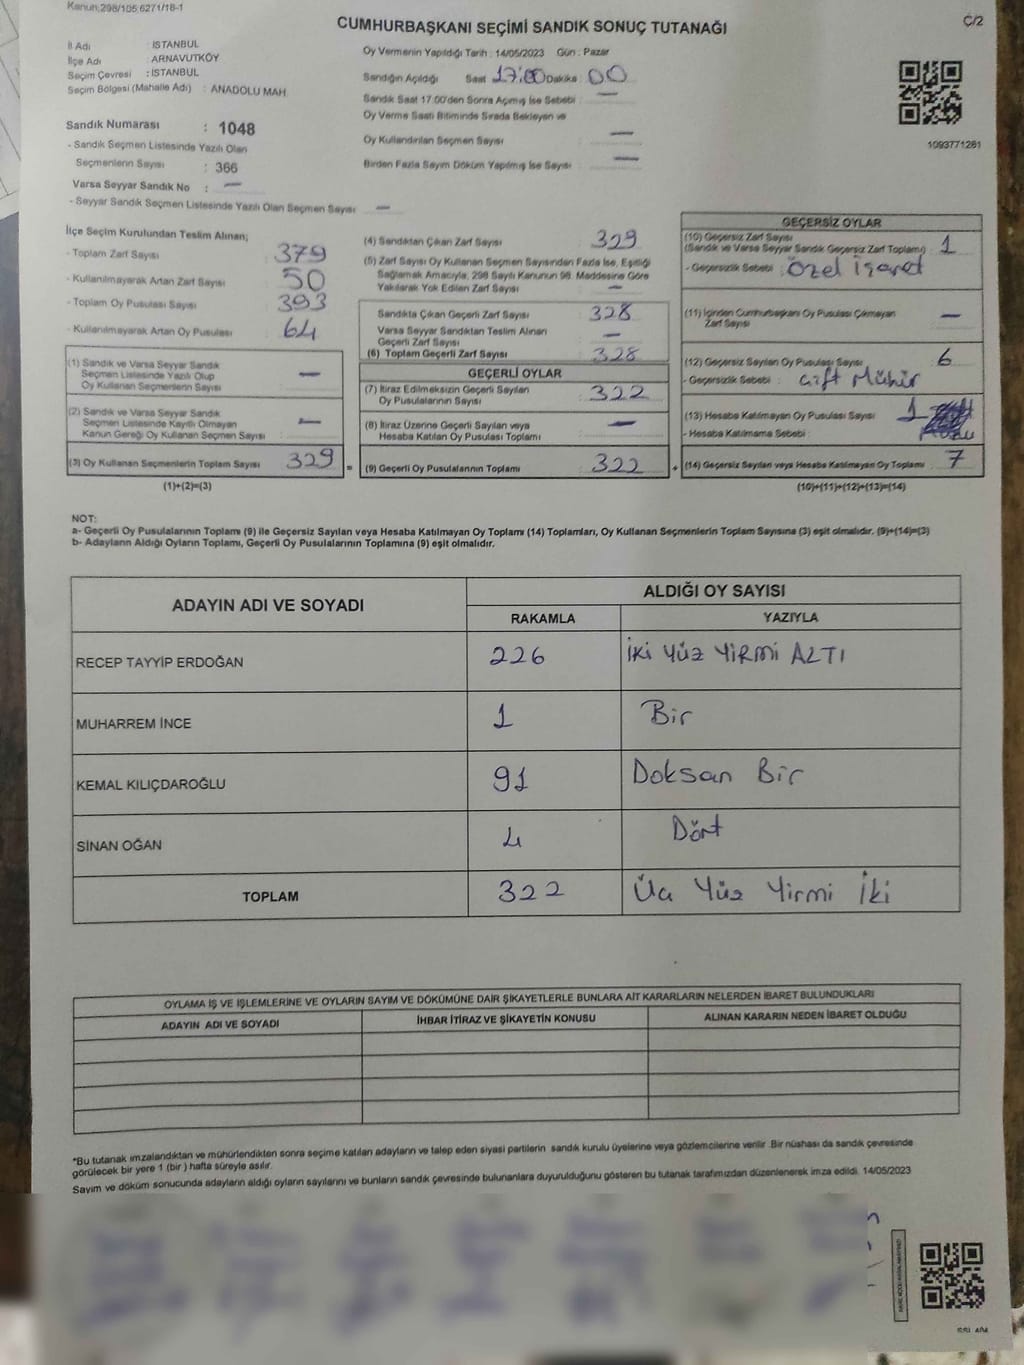 Kanun;298/105;6271/18-1
CUMHURBAŞKANI SEÇİMİ SANDIK SONUÇ TUTANAĞI
Ç/2
İl Adı : İSTANBUL
İlçe Adı : ARNAVUTKÖY
Seçim Çevresi : İSTANBUL
Seçim Bölgesi (Mahalle Adı) : ANADOLU MAH.
Oy Vermenin Yapıldığı Tarih : 14/05/2023 Gün : Pazar
Sandığın Açıldığı Saat 17:00 Dakika : 00
Sandık Saat 17.00'den Sonra Açılmış İse Sebebi : —
Oy Verme Saati Bitiminde Sırada Bekleyen ve
Oy Kullandırılan Seçmen Sayısı : —
Birden Fazla Sayım Döküm Yapılmış İse Sayısı : —
1093771281
Sandık Numarası : 1048
- Sandık Seçmen Listesinde Yazılı Olan
Seçmenlerin Sayısı : 366
Varsa Seyyar Sandık No : —
- Seyyar Sandık Seçmen Listesinde Yazılı Olan Seçmen Sayısı : —
İlçe Seçim Kurulundan Teslim Alınan;
- Toplam Zarf Sayısı : 379
- Kullanılmayarak Artan Zarf Sayısı : 50
- Toplam Oy Pusulası Sayısı : 393
- Kullanılmayarak Artan Oy Pusulası : 64
(1) Sandık ve Varsa Seyyar Sandık
Seçmen Listesinde Yazılı Olup
Oy Kullanan Seçmenlerin Sayısı : —
(2) Sandık ve Varsa Seyyar Sandık
Seçmen Listesinde Kayıtlı Olmayan
Kanun Gereği Oy Kullanan Seçmen Sayısı : —
(3) Oy Kullanan Seçmenlerin Toplam Sayısı : 329 =
(1)+(2)=(3)
(4) Sandıktan Çıkan Zarf Sayısı : 329
(5) Zarf Sayısı Oy Kullanan Seçmen Sayısından Fazla İse, Eşitliği
Sağlamak Amacıyla, 298 Sayılı Kanunun 98. Maddesine Göre
Yakılarak Yok Edilen Zarf Sayısı : —
Sandıkta Çıkan Geçerli Zarf Sayısı : 328
Varsa Seyyar Sandıktan Teslim Alınan
Geçerli Zarf Sayısı : —
(6) Toplam Geçerli Zarf Sayısı : 328
GEÇERLİ OYLAR
(7) İtiraz Edilmeksizin Geçerli Sayılan
Oy Pusulalarının Sayısı : 322
(8) İtiraz Üzerine Geçerli Sayılan veya
Hesaba Katılan Oy Pusulası Toplamı : —
(9) Geçerli Oy Pusulalarının Toplamı : 322 +
GEÇERSİZ OYLAR
(10) Geçersiz Zarf Sayısı
(Sandık ve Varsa Seyyar Sandık Geçersiz Zarf Toplamı) : 1
- Geçersizlik Sebebi : Özel İşaret
(11) İçinden Cumhurbaşkanı Oy Pusulası Çıkmayan
Zarf Sayısı : —
(12) Geçersiz Sayılan Oy Pusulası Sayısı : 6
- Geçersizlik Sebebi : Çift Mühür
(13) Hesaba Katılmayan Oy Pusulası Sayısı : 1
- Hesaba Katılmama Sebebi :
(14) Geçersiz Sayılan veya Hesaba Katılmayan Oy Toplamı : 7
(10)+(11)+(12)+(13)=(14)
NOT:
a- Geçerli Oy Pusulalarının Toplamı (9) ile Geçersiz Sayılan veya Hesaba Katılmayan Oy Toplamı (14) Toplamları, Oy Kullanan Seçmenlerin Toplam Sayısına (3) eşit olmalıdır. (9)+(14)=(3)
b- Adayların Aldığı Oyların Toplamı, Geçerli Oy Pusulalarının Toplamına (9) eşit olmalıdır.
ADAYIN ADI VE SOYADI
ALDIĞI OY SAYISI
RAKAMLA YAZIYLA
RECEP TAYYİP ERDOĞAN 226 İki Yüz YİRMİ ALTI
MUHARREM İNCE 1 Bir
KEMAL KILIÇDAROĞLU 91 Doksan Bir
SİNAN OĞAN 4 Dört
TOPLAM 322 Üç Yüz Yirmi İki
OYLAMA İŞ VE İŞLEMLERİNE VE OYLARIN SAYIM VE DÖKÜMÜNE DAİR ŞİKAYETLERLE BUNLARA AİT KARARLARIN NELERDEN İBARET BULUNDUKLARI
ADAYIN ADI VE SOYADI İHBAR İTİRAZ VE ŞİKAYETİN KONUSU ALINAN KARARIN NEDEN İBARET OLDUĞU
*Bu tutanak imzalandıktan ve mühürlendikten sonra seçime katılan adayların ve talep eden siyasi partilerin sandık kurulu üyelerine veya gözlemcilerine verilir. Bir nüshası da sandık çevresinde
görülecek bir yere 1 (bir) hafta süreyle asılır.
Sayım ve döküm sonucunda adayların aldığı oyların sayılarını ve bunların sandık çevresinde bulunanlara duyurulduğunu gösteren bu tutanak tarafımızdan düzenlenerek imza edildi. 14/05/2023